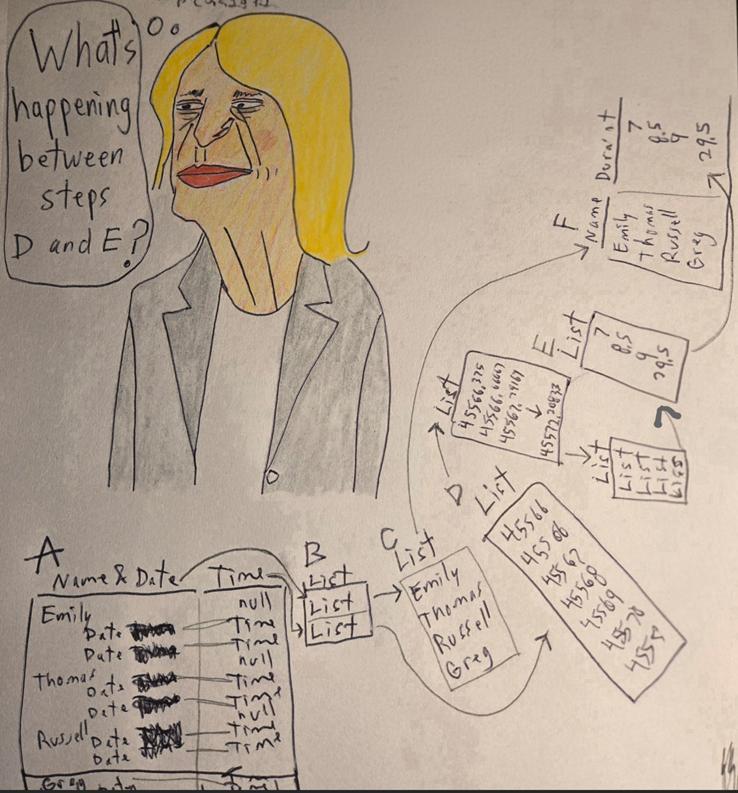 What's
happening
between
steps
D and E?
A
Name & Date Time
Emily null
Date Time
Date Time
null
Thomas
Date Time
Date Time
null
Russell Date Time
Date Time
Greg
B
List
List
List
C
List
Emily
Thomas
Russell
Greg
D
List
45566
45566
45567
45568
45569
45570
List
45566.375
45566.66667
45567.29167
45572.20833
List
List
List
List
List
List
E
List
7
8.5
9
29.5
F
Name
Emily
Thomas
Russell
Greg
7
8.5
9
29.5